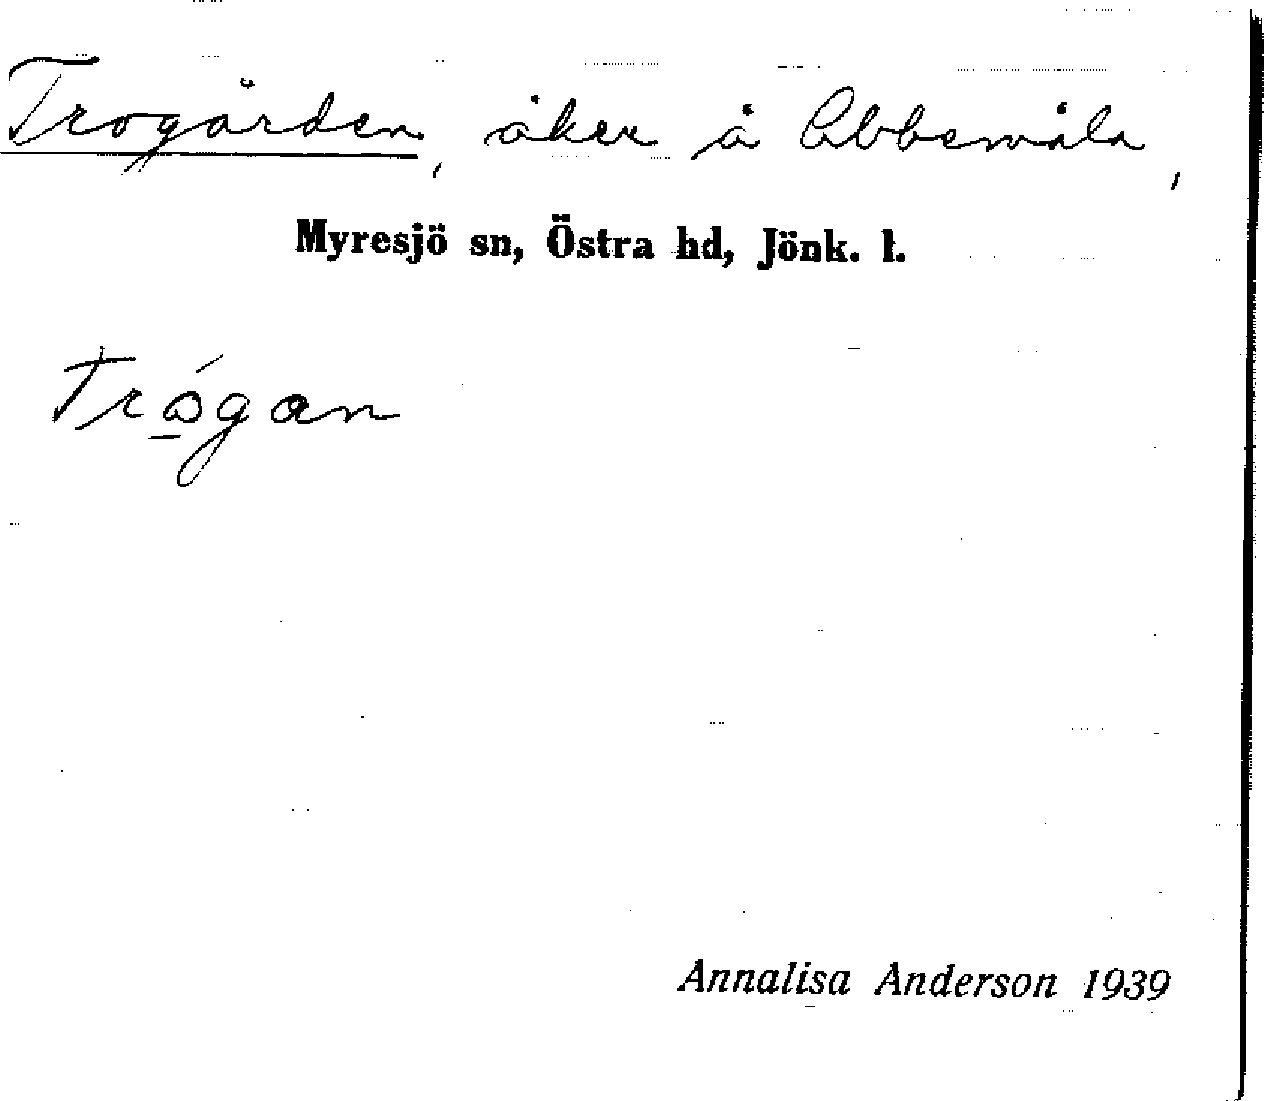 Trogården, åker å Abbemåla,
Myresjö sn, Östra hd, Jönk. l.
Trógan
Annalisa Anderson 1939